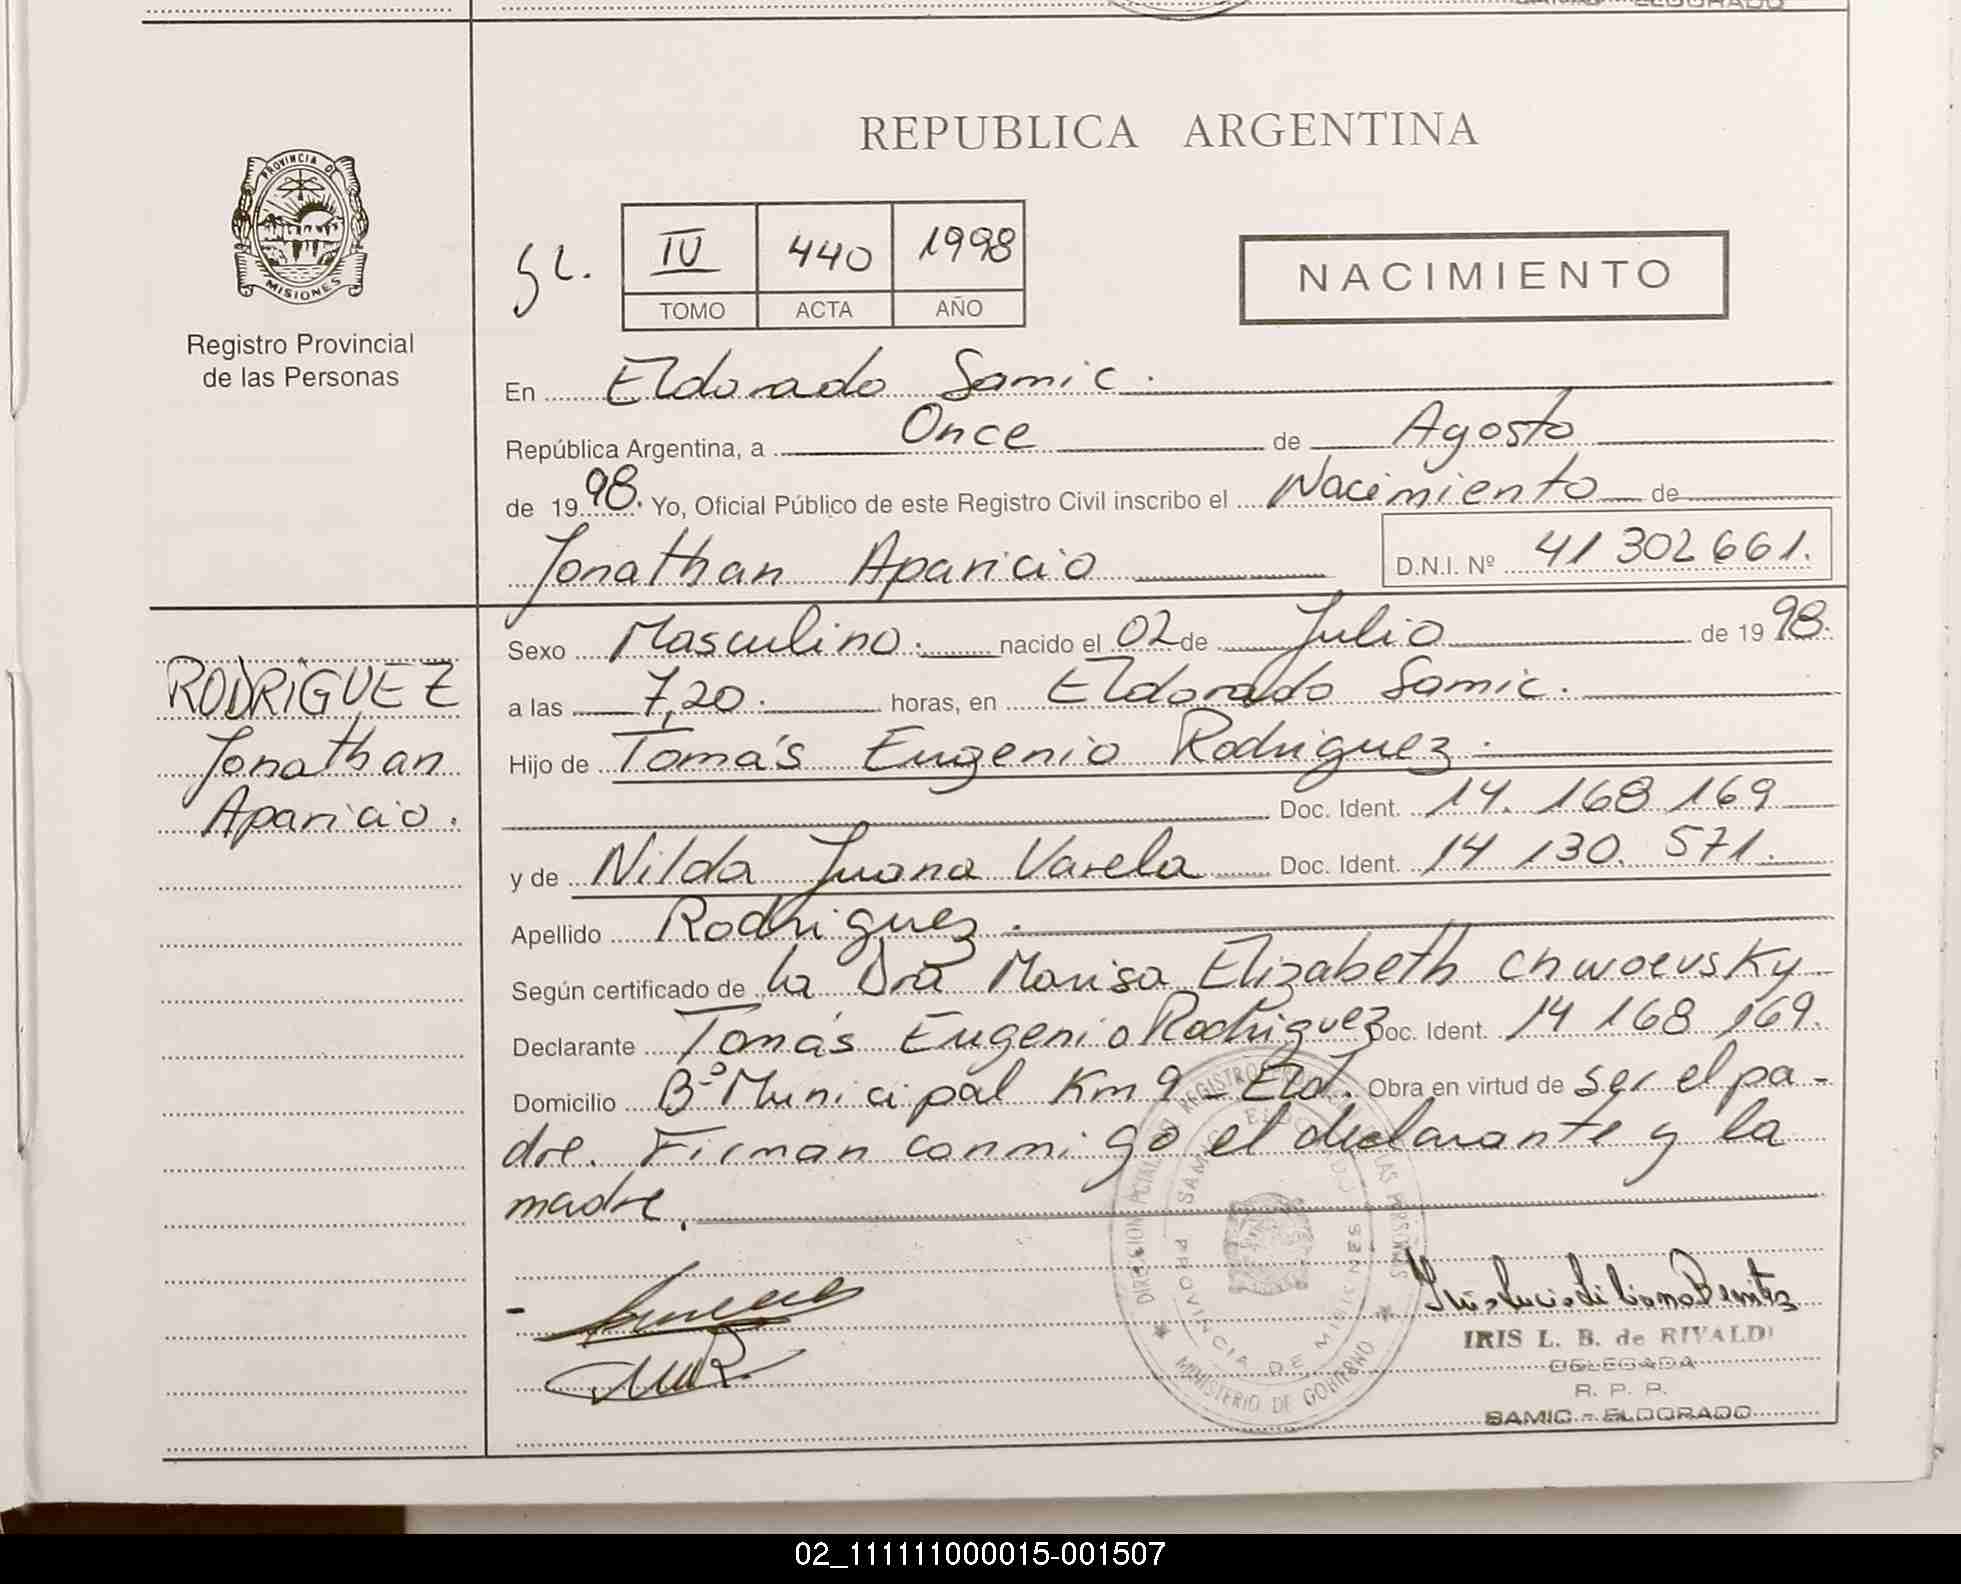 REPUBLICA ARGENTINA
PROVINCIA DE
MISIONES
Registro Provincial
de las Personas
IV 440 1998
TOMO ACTA AÑO
NACIMIENTO
En Eldorado Samic.
República Argentina, a Once de Agosto
de 1998. Yo, Oficial Público de este Registro Civil inscribo el Nacimiento de
Jonathan Aparicio D.N.I. Nº 41 302 661.
RODRIGUEZ
Jonathan
Aparicio.
Sexo Masculino. nacido el 02 de Julio de 1998.
a las 7,20. horas, en Eldorado Samic.
Hijo de Tomás Eugenio Rodriguez.
Doc. Ident. 14. 168 169
y de Nilda Juana Varela Doc. Ident. 14 130. 571.
Apellido Rodriguez.
Según certificado de la Dra Marisa Elizabeth Chwoevsky
Declarante Tomás Eugenio Rodriguez Doc. Ident. 14 168 169.
Domicilio Bº Municipal Km 9 - Eld. Obra en virtud de ser el pa-
dre. Firman conmigo el declarante y la
madre.
IRIS L. B. de RIVALDI
DELEGADA
R. P. P.
SAMIC - ELDORADO
PROVINCIA DE MISIONES
MINISTERIO DE GOBIERNO
02_111111000015-001507